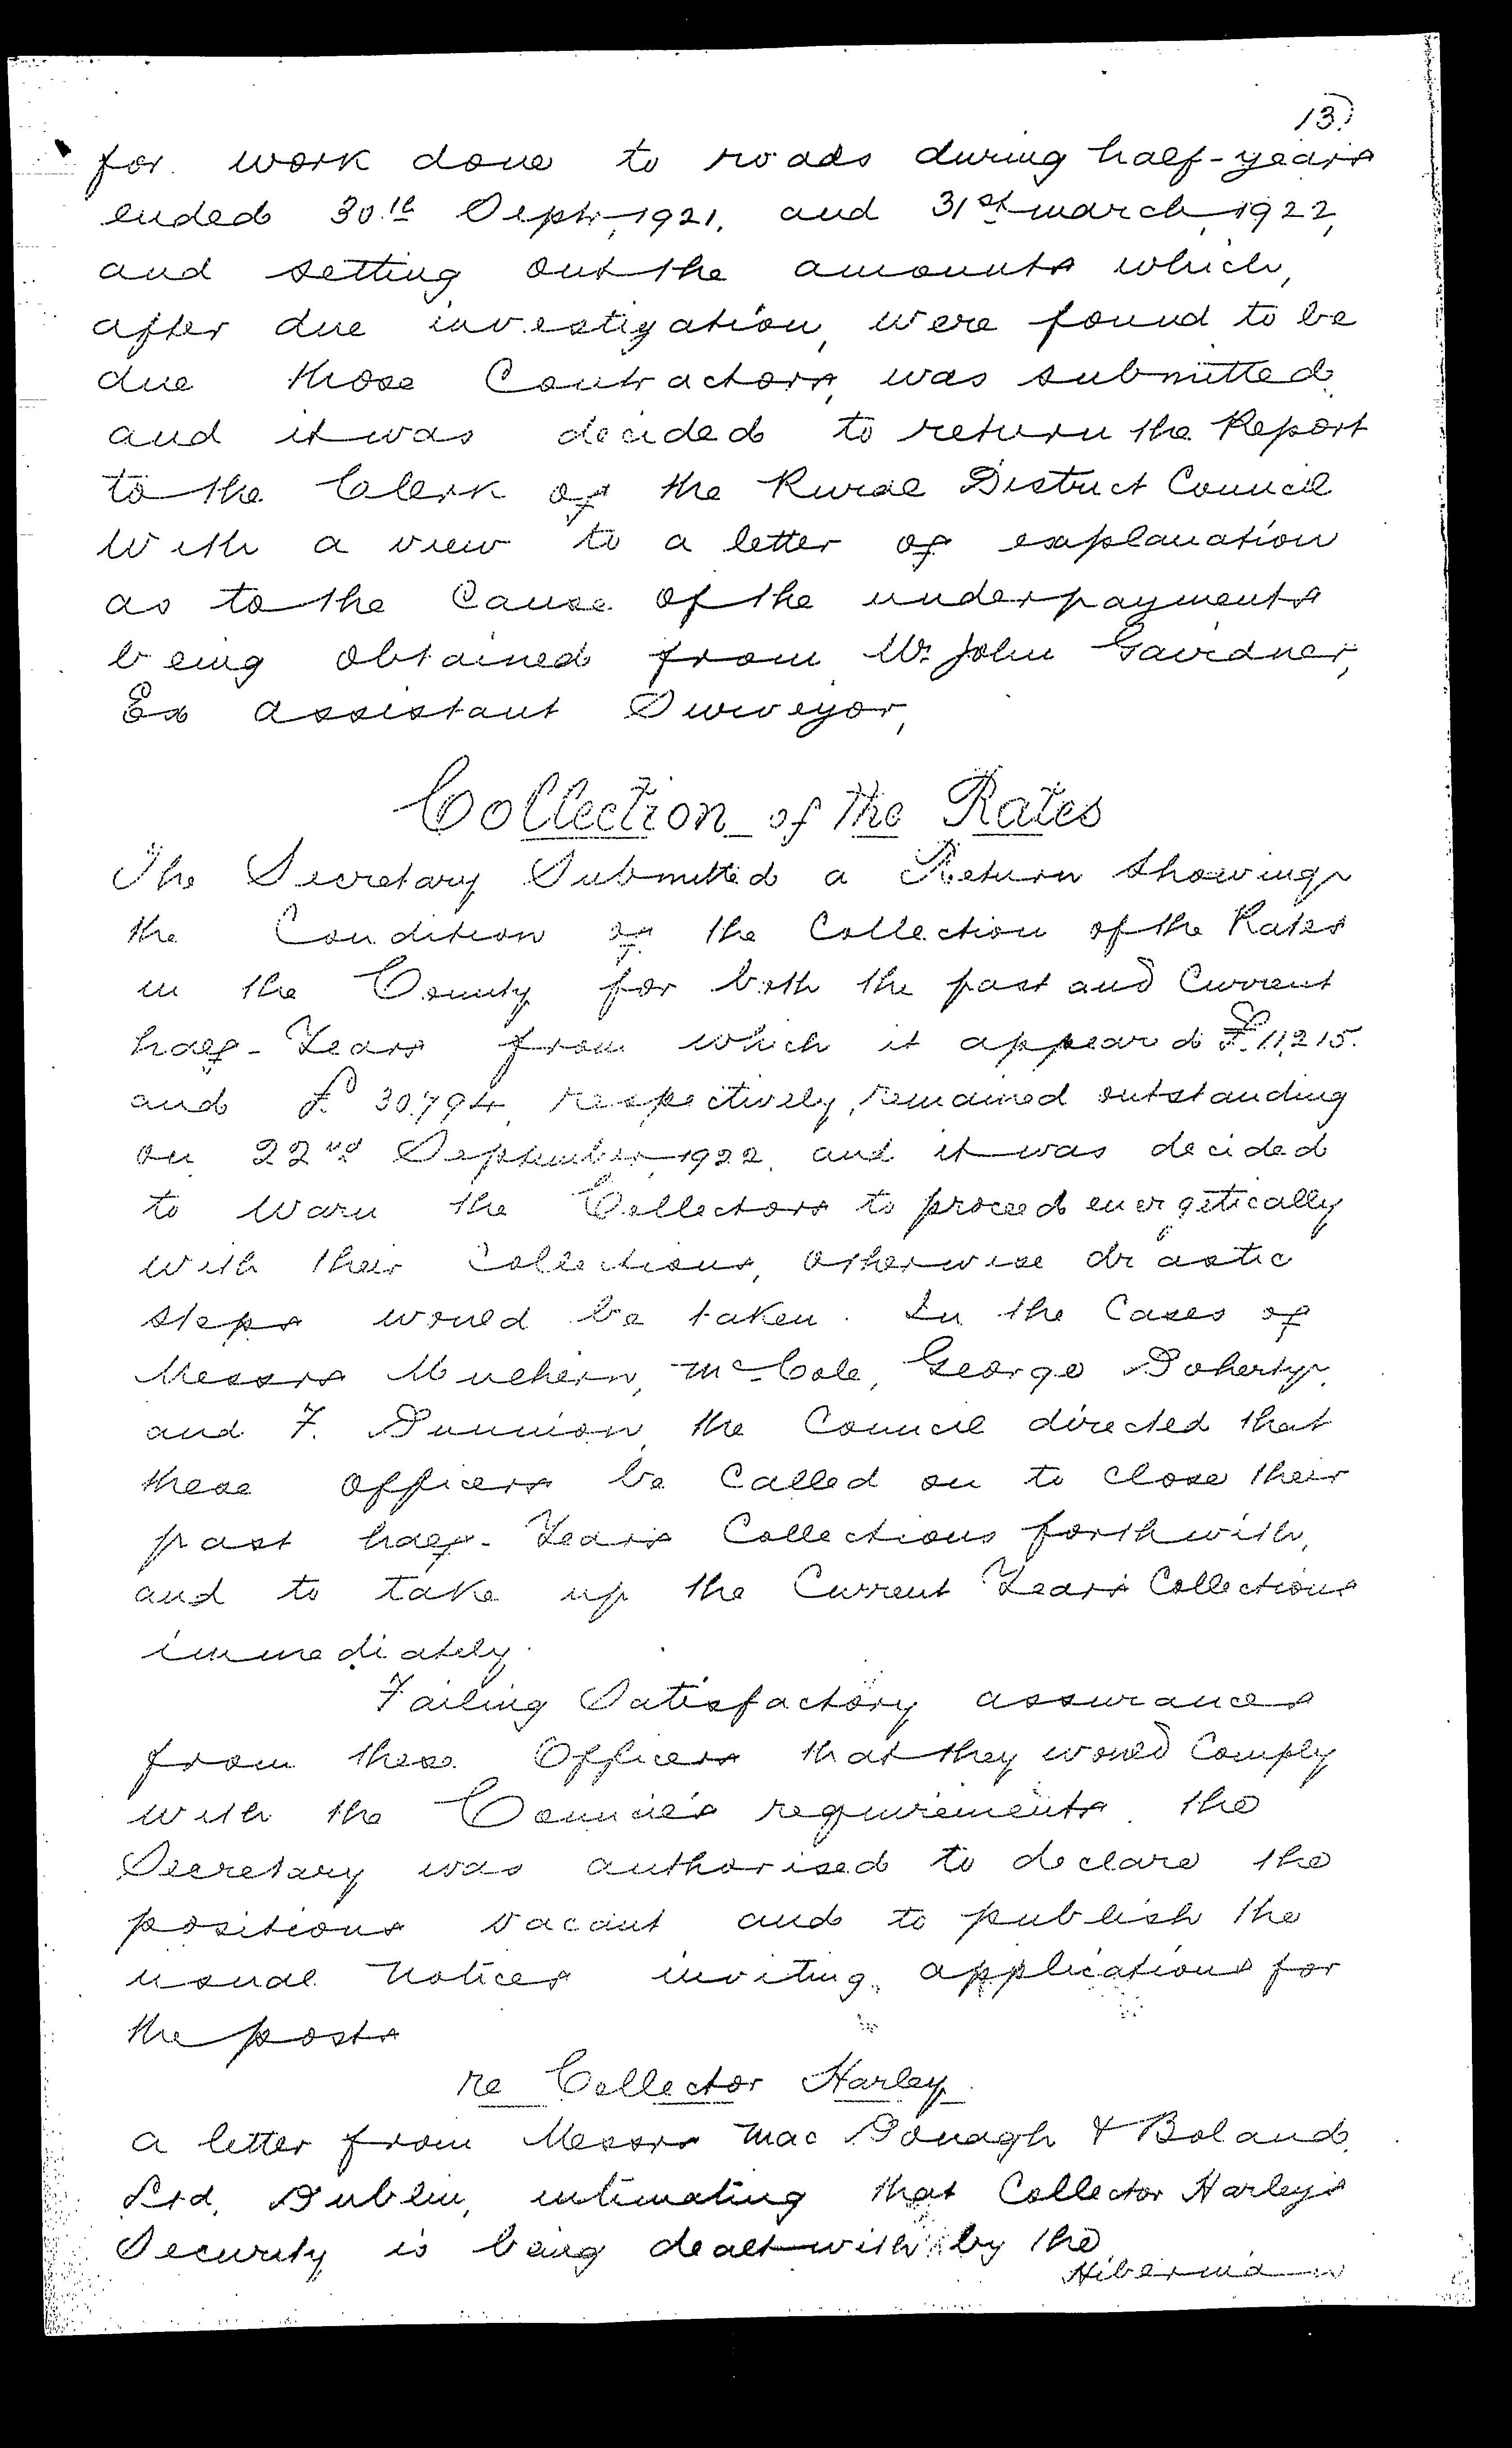 13)
for work done to roads during half-years
ended 30th Sept, 1921, and 31st march, 1922,
and setting out the amounts which,
after due investigation, were found to be
due those Contractors, was submitted
and it was decided to return the Report
to the Clerk of the Rural District Council
with a view to a letter of explanation
as to the Cause of the underpayments
being obtained from Mr John Gairdner,
Ex assistant Surveyor,
Collection of the Rates
The Secretary Submitted a Return showing
the Condition of the Collection of the Rates
in the County for both the past and Current
half-Years from which it appeared £11,215.
and £30,794, respectively, remained outstanding
on 22nd September, 1922, and it was decided
to warn the Collectors to proceed energetically
with their Collections, otherwise drastic
steps would be taken. In the Cases of
Messrs Mulhern, McCole, George Doherty,
and F. Dunnion, the Council directed that
these Officers be Called on to Close their
past half-Years Collections forthwith,
and to take up the Current Years Collections
immediately.
Failing Satisfactory assurances
from these Officers that they would Comply
with the Council's requirements, the
Secretary was authorised to declare the
positions vacant and to publish the
usual notices inviting applications for
the posts
re Collector Harley.
A letter from Messrs Mac Donagh & Boland
Ltd, Dublin, intimating that Collector Harley's
Security is being dealt with by the
Hibernian